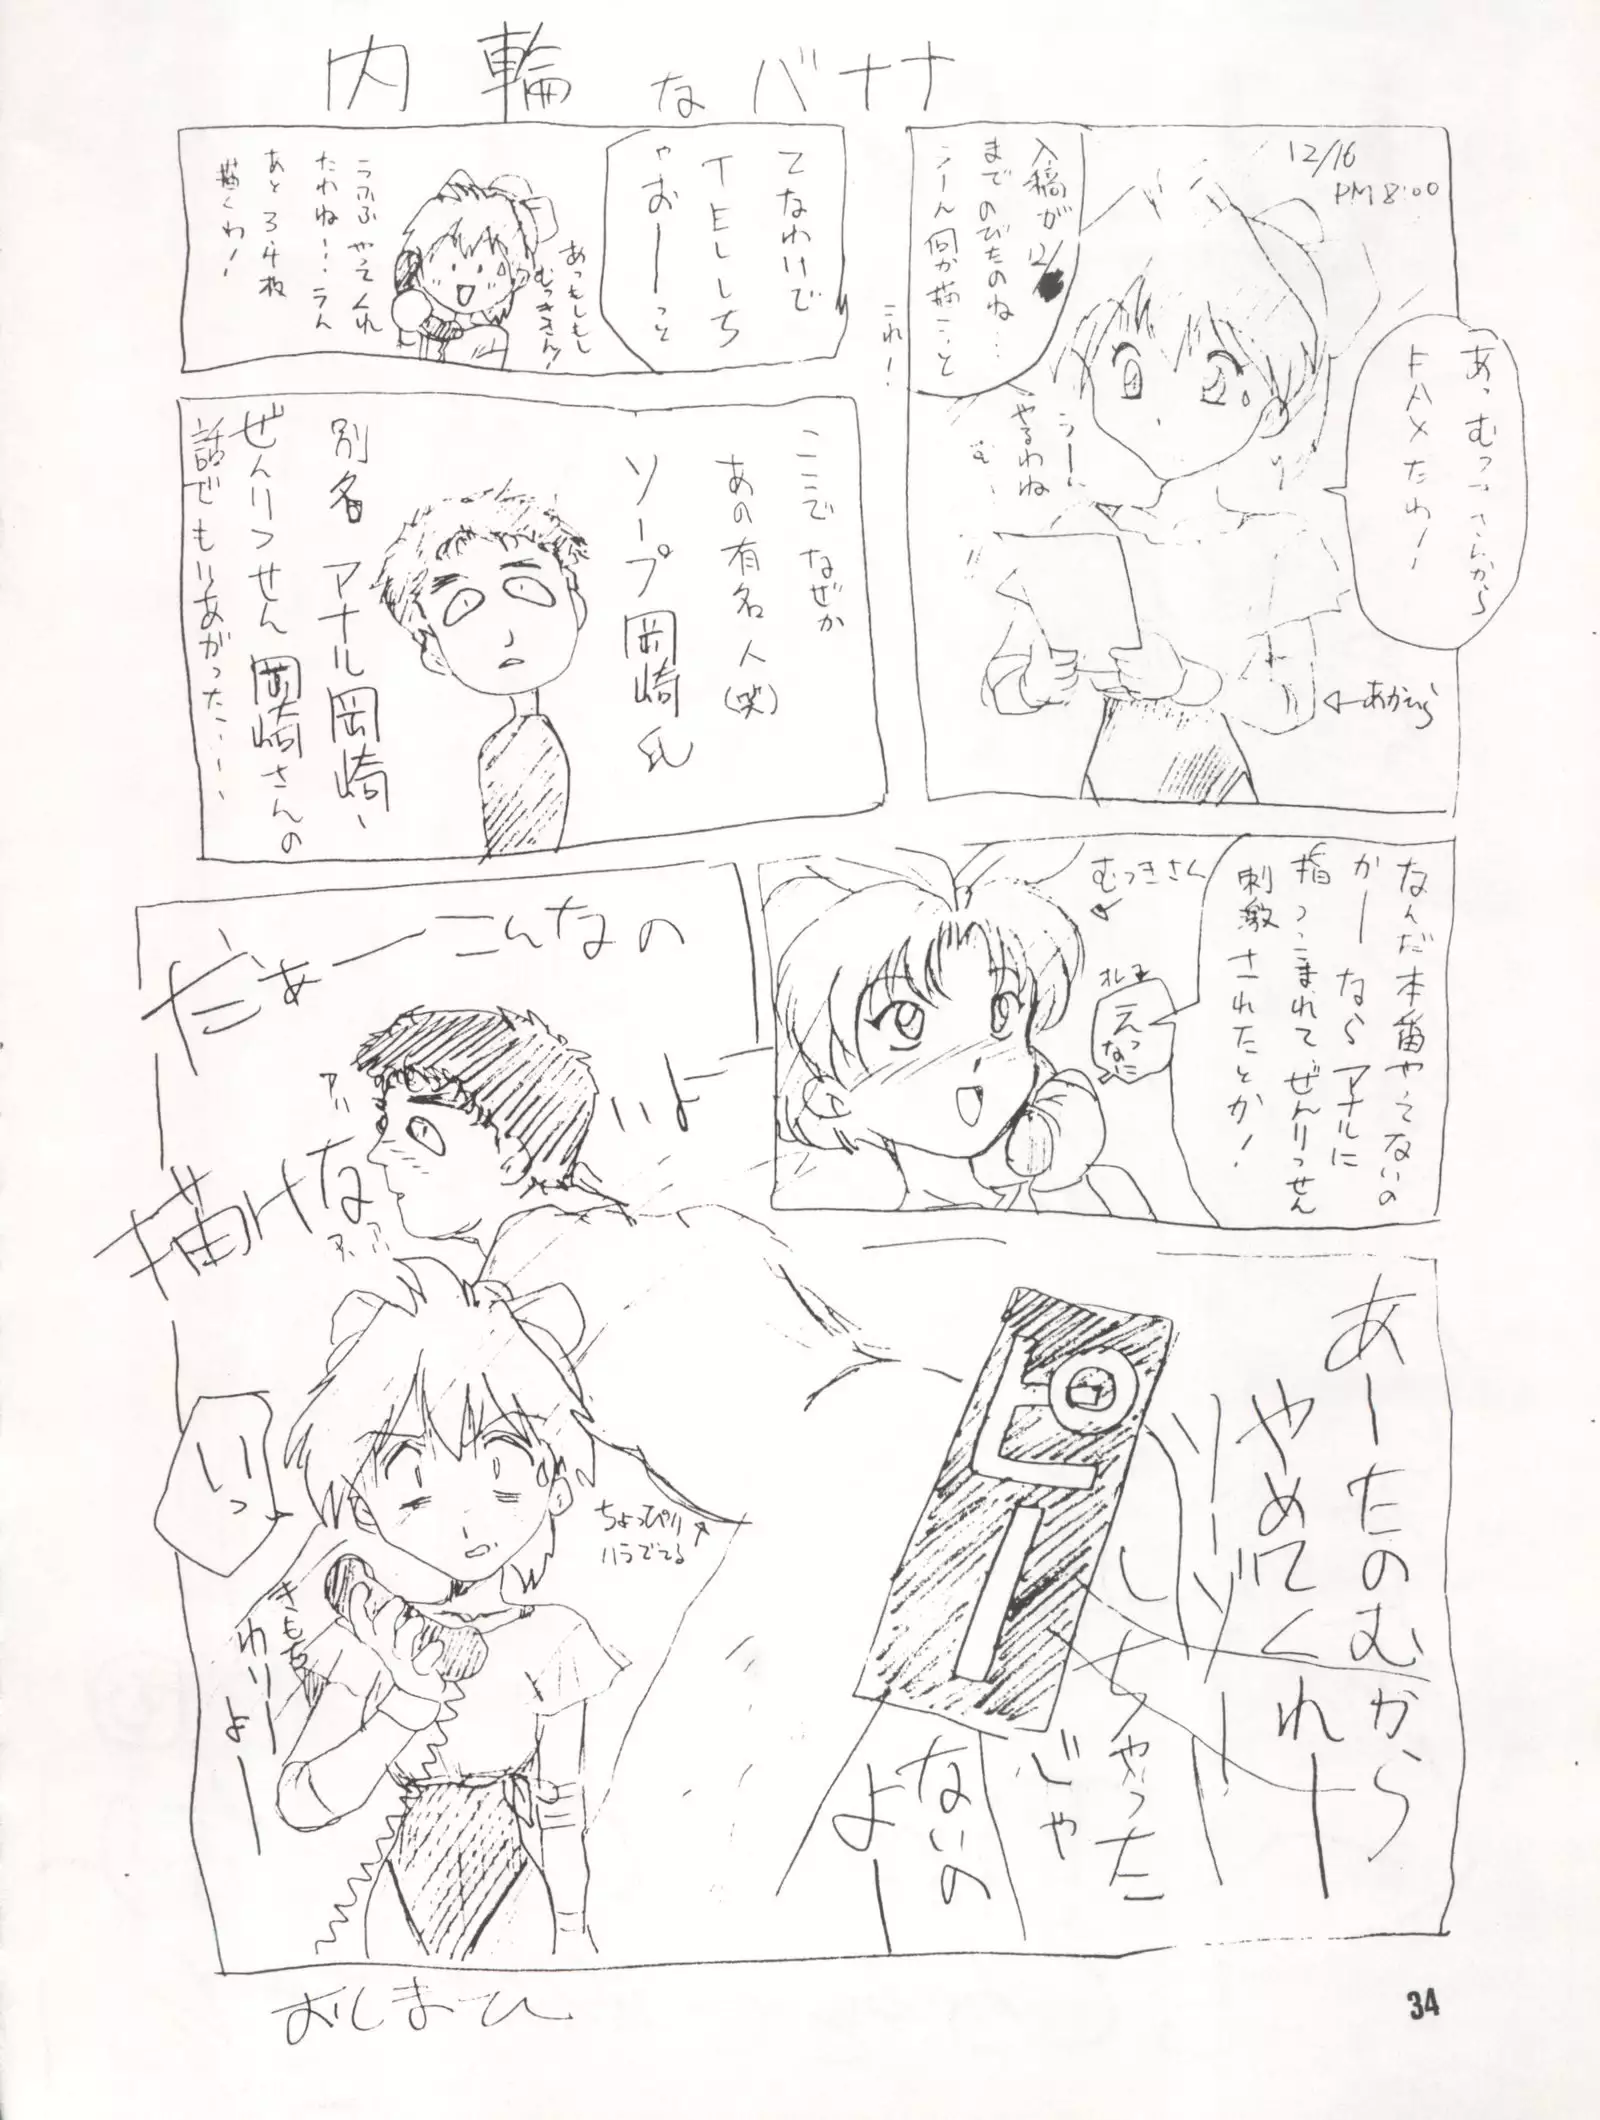 内輪なバナナ
12/16
PM 8:00
あっむつきさんから
FAXだわ!
入稿が12/
までのびたのね…
うーん何か描こっと
うーん
やるわね
む…
これ!
←あかむら
てなわけで
TELしち
ゃおーっと
あっもしもし
むつきさん!
うふふやってくれ
たわね!…うん
あと3、4枚
描くわ!
ここでなぜか
あの有名人(笑)
ソープ岡崎氏
別名アナル岡崎、
ぜんりつせん岡崎さんの
話でもりあがった……
なんだ本番やってないの
かーならアナルに
指つっこまれてぜんりつせん
刺激されたとか!
むつきさん
オレよ
えっ
なに
だぁーこんなの
いよー
描けな
アハ
アハハ
あーたのむから
やめてくれー
ソーゾー
しちゃった
じゃ
ないの
よー
ヒ
ー
いっ
きもち
わりー
よー
ちょっぴり
ハラでてる
おしまひ
34